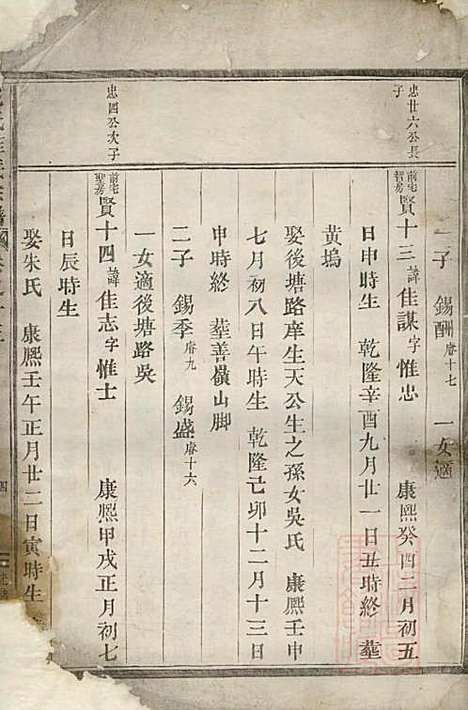 二子 錫酬睿十七 一女適
忠廿六公長子
前宅智房 賢十三諱佳謀字惟忠 康熙癸酉二月初五
日申時生 乾隆辛酉九月廿一日丑時終 塟
黃塢
娶後塘路庠生天公生之孫女吳氏 康熙壬申
七月初八日午時生 乾隆己卯十二月十三日
申時終 塟善嶺山脚
二子 錫季睿九 錫盛睿十六
一女適後塘路吳
忠四公次子
前宅聖房 賢十四諱佳志字惟士 康熙甲戌正月初七
日辰時生
娶朱氏 康熙壬午正月廿二日寅時生